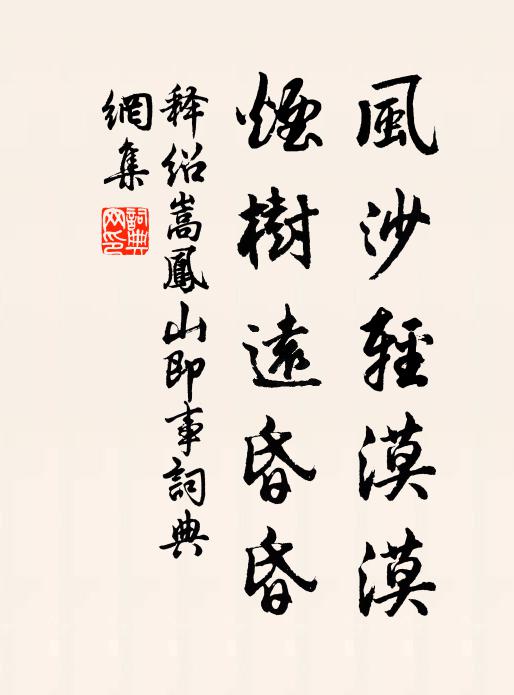 風沙輕漠漠
煙樹遠昏昏
释绍嵩鳳山即事詞典
網集
詞典網印